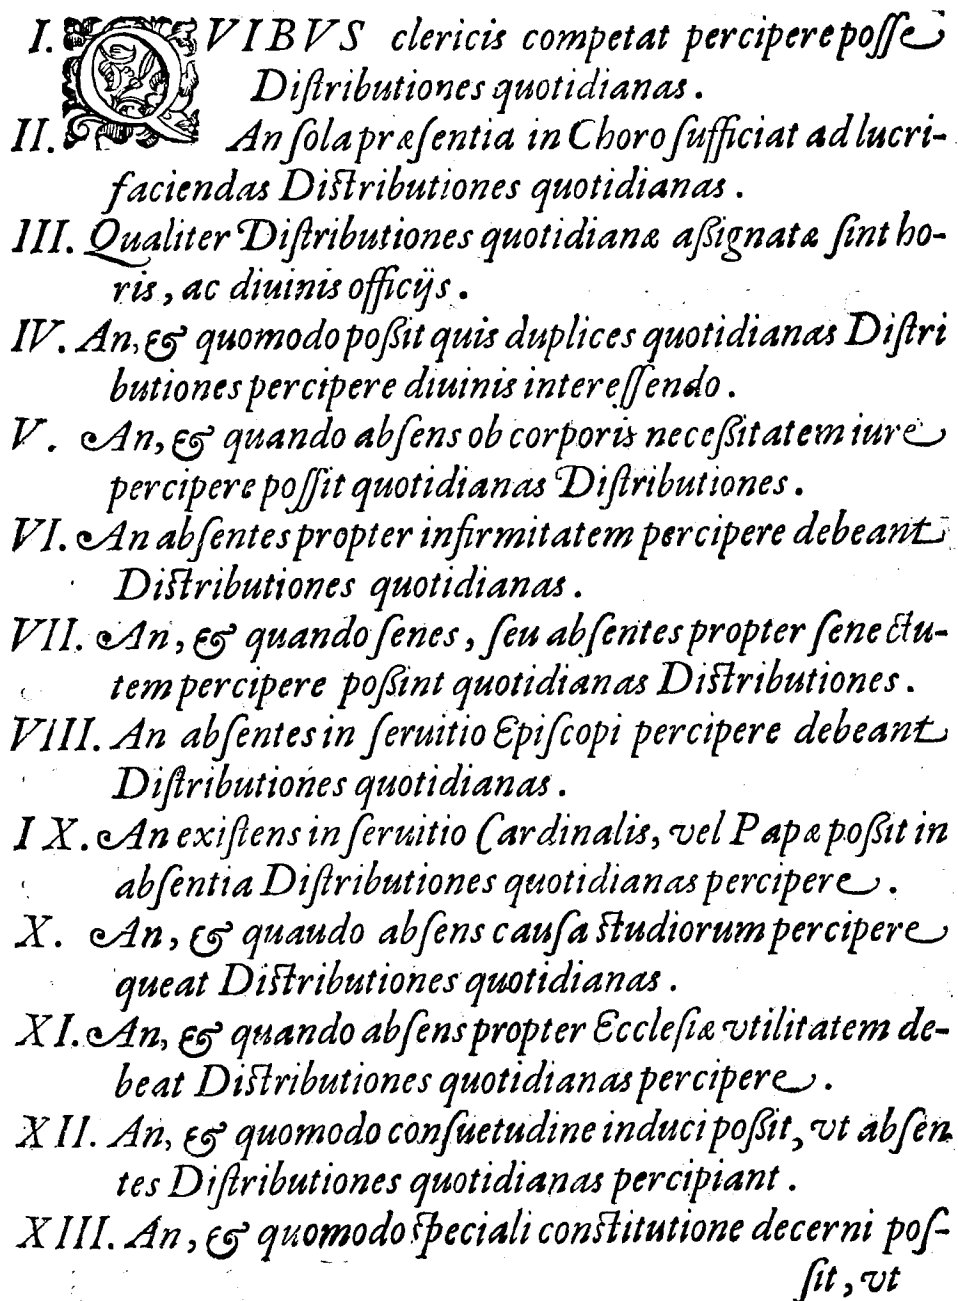 I. QVIBVS clericis competat percipere posse
Distributiones quotidianas.
II. An sola præsentia in Choro sufficiat ad lucri-
faciendas Distributiones quotidianas.
III. Qualiter Distributiones quotidianæ assignatæ sint ho-
ris, ac diuinis officijs.
IV. An, & quomodo possit quis duplices quotidianas Distri
butiones percipere diuinis interessendo.
V. An, & quando absens ob corporis necessitatem iure
percipere possit quotidianas Distributiones.
VI. An absentes propter infirmitatem percipere debeant
Distributiones quotidianas.
VII. An, & quando senes, seu absentes propter senectu-
tem percipere possint quotidianas Distributiones.
VIII. An absentes in seruitio Episcopi percipere debeant
Distributiones quotidianas.
IX. An existens in seruitio Cardinalis, vel Papæ possit in
absentia Distributiones quotidianas percipere.
X. An, & quaudo absens causa studiorum percipere
queat Distributiones quotidianas.
XI. An, & quando absens propter Ecclesiæ vtilitatem de-
beat Distributiones quotidianas percipere.
XII. An, & quomodo consuetudine induci possit, vt absen
tes Distributiones quotidianas percipiant.
XIII. An, & quomodo speciali constitutione decerni pos-
sit, vt